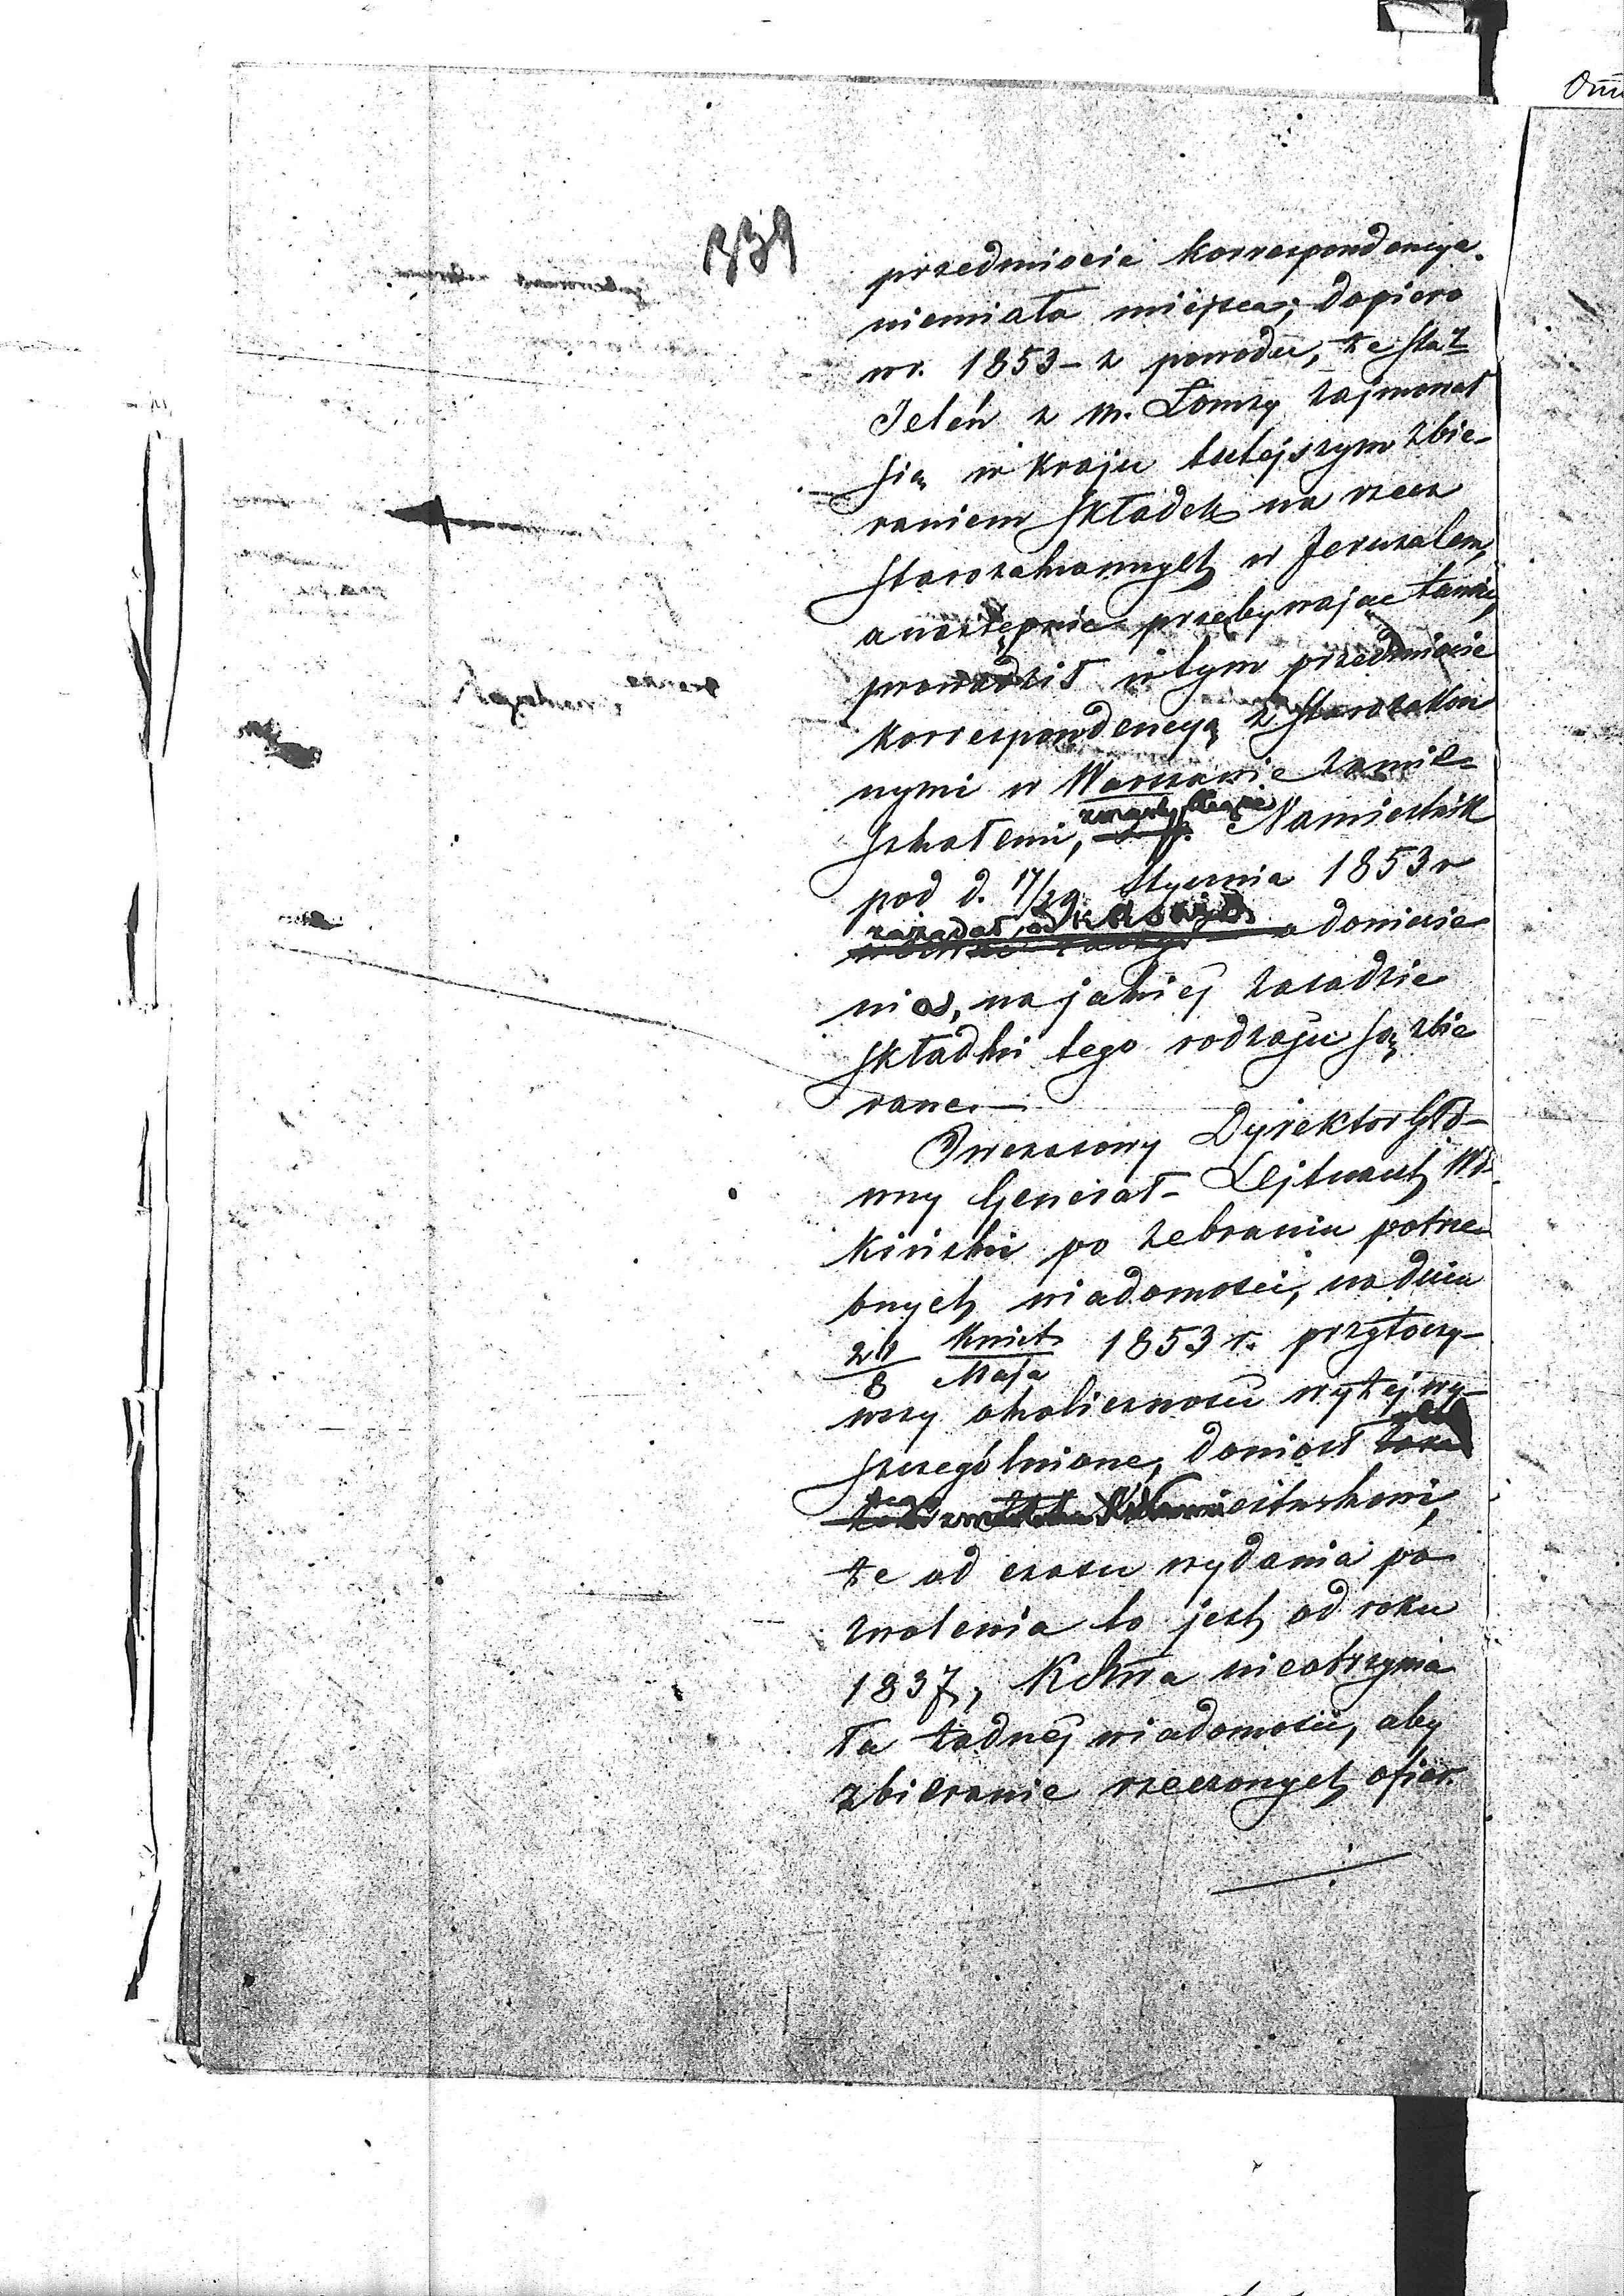 339
przedmiocie korrespondencya
niemiała miejsca; dopiero
w r. 1853 – z powodu, że Staz
Jeleń z m. Łomży zajmował
się w Kraju tutejszym zbie-
raniem składek na rzecz
starozakonnych w Jeruzalem,
a następnie przebywając tamże,
prowadził w tym przedmiocie
korrespondencyą z Starozakon
nymi w Warszawie zamie-
szkałemi, Namiestnik
pod d. 17/29 Stycznia 1853 r
zażądał od
doniesie
nia, na jakiej zasadzie
składki tego rodzaju są zbie
rane.—
Owczasowy Dyrektor Głó-
wny Generał-Lejtnant Wi-
kiński po zebraniu potrze
bnych wiadomości, na dniu
26/8 Kwiet/Maja 1853 r. przytoczy-
wszy okoliczności wyżej wy-
szczególnione, doniosł
że od czasu wydania po
zwolenia to jest od roku
1837, KRSWa nieotrzyma
ła żadnej wiadomości, aby
zbieranie rzeczonych ofiar